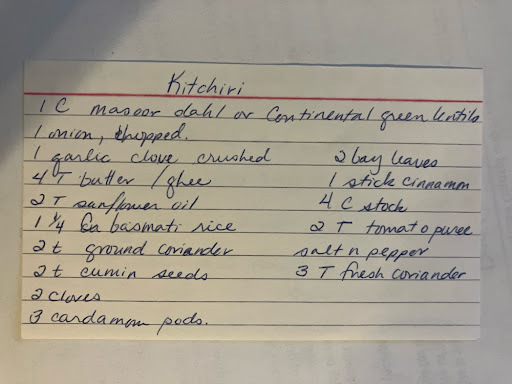 Kitchiri
1 C masoor dahl or Continental green lentils
1 onion, chopped.
1 garlic clove crushed
4 T butter / ghee
2 T sunflower oil
1 1/4 C basmati rice
2 t ground coriander
2 t cumin seeds
2 cloves
3 cardamom pods.
2 bay leaves
1 stick cinnamon
4 C stock
2 T tomato puree
salt n pepper
3 T fresh coriander